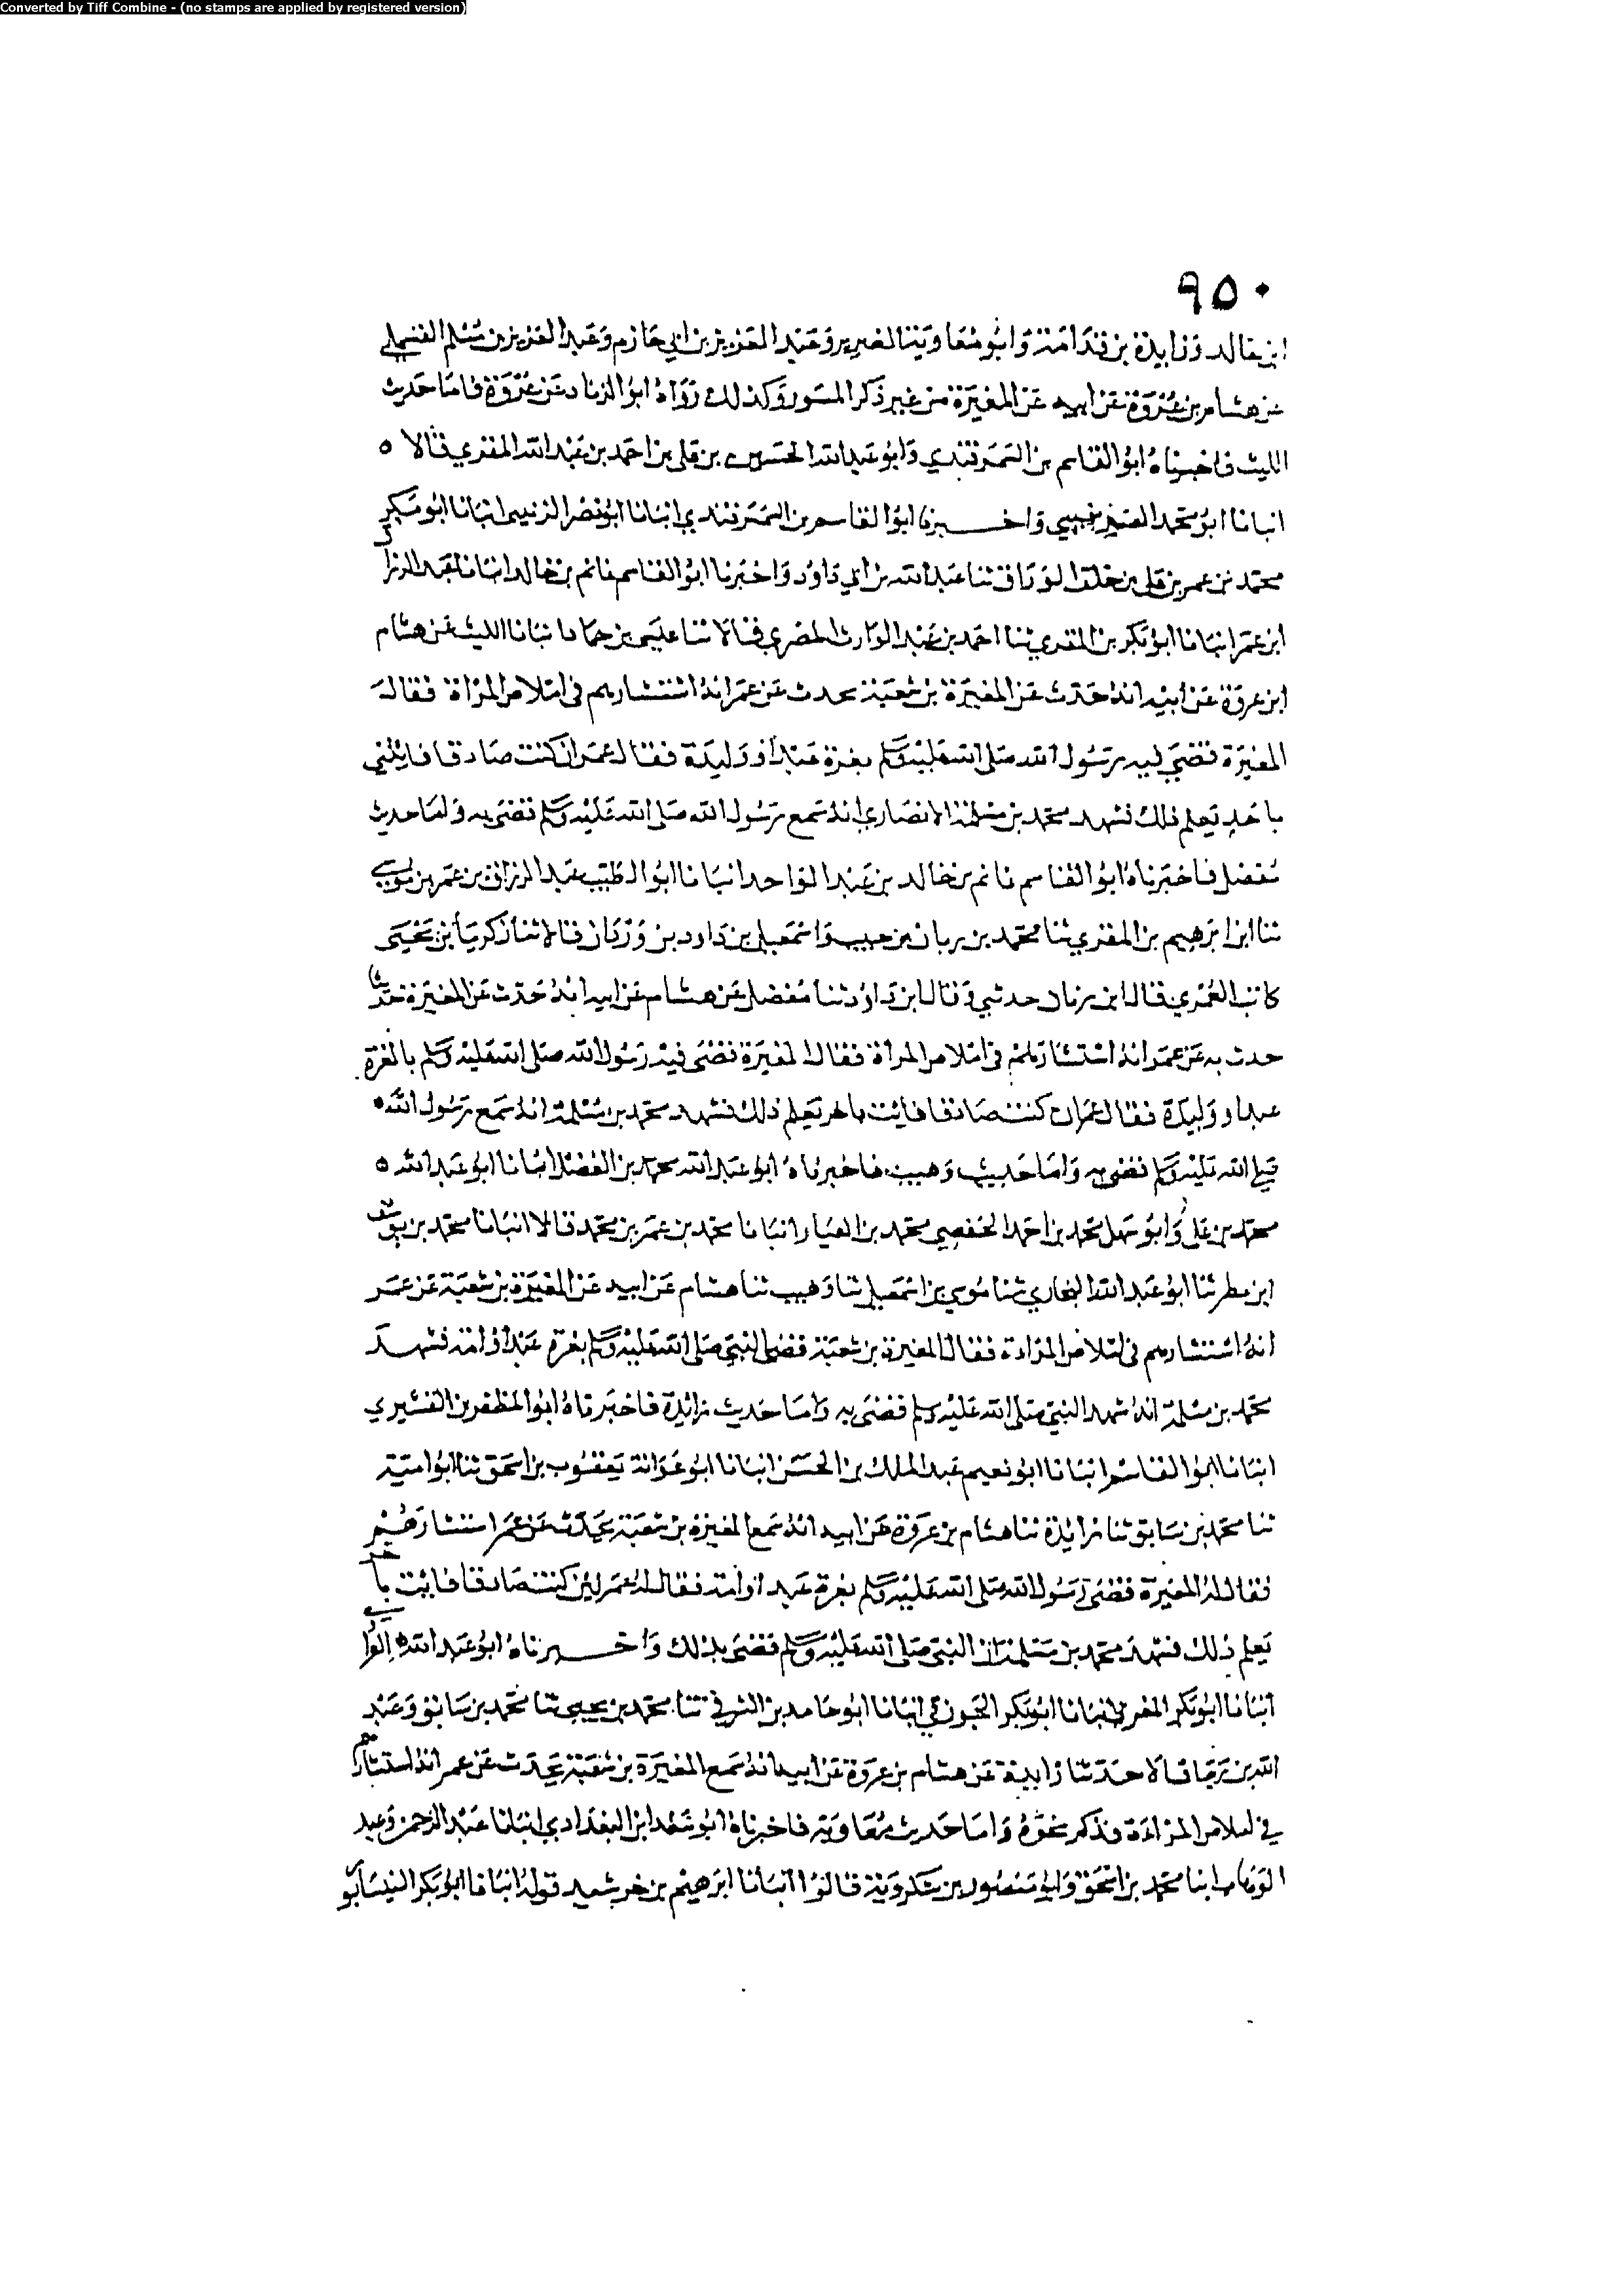 Converted by Tiff Combine - (no stamps are applied by registered version)
٩٥٠
ابن خالد وزايدة بن قدامة وابو معاوية الضرير وعبد العزيز بن ابي حازم وعبد العزيز بن مسلم القسملي
عن هشام بن عروة عن ابيه عن المغيرة من غير ذكر المسور وكذلك رواه ابو الزناد عن عروة فاما حديث
الليث فاخبرناه ابو القاسم بن السمرقندي وابو عبد الله الحسين بن علي بن احمد بن عبد الله المقري قالا ه
انبانا ابو محمد الصريفيني واخبرنا ابو القاسم بن السمرقندي انبانا ابو نصر الزينبي انبانا ابو بكر
محمد بن عمر بن علي بن خلف الوراق ثنا عبد الله بن ابي داود واخبرنا ابو القاسم غانم بن خالد انبانا عبد الرزاق
ابن عمر انبانا ابو بكر بن المقري ثنا احمد بن عبد الوارث المصري قالا ثنا عيسى بن حماد انبانا الليث عن هشام
ابن عروة عن ابيه انه حدث عن المغيرة بن شعبة يحدث عن عمر انه استشارهم في املاص المراة فقال له
المغيرة قضى فيه رسول الله صلى الله عليه وسلم بغرة عبد او وليدة فقال عمر ان كنت صادقا فائتني
باحد يعلم ذلك فشهد محمد بن مسلمة الانصاري انه سمع رسول الله صلى الله عليه وسلم قضى به واما حديث
مفضل فاخبرناه ابو القاسم غانم بن خالد بن عبد الواحد انبانا ابو الطيب عبد الرزاق بن عمر بن موسى
ثنا ابن ابرهيم بن المقري ثنا محمد بن زبان بن حبيب واسمعيل بن داود بن وردان قالا ثنا زكريا بن يحيى
كاتب العمري قال ابن زبان حدثني وقال ابن داود ثنا مفضل عن هشام عن ابيه انه حدث عن المغيرة حديثا
حدث به عن عمر انه استشارهم في املاص المراة فقال المغيرة قضى فيه رسول الله صلى الله عليه وسلم بالغرة
عبد او وليدة فقال عمر ان كنت صادقا فائت باحد يعلم ذلك فشهد محمد بن مسلمة انه سمع رسول الله ه
صلى الله عليه وسلم قضى به واما حديث وهيب فاخبرناه ابو عبد الله محمد بن الفضل انبانا ابو عبد الله ه
محمد بن علي وابو سهل محمد بن احمد الحفصي محمد بن العيار انبانا محمد بن عمر بن محمد قالا انبانا محمد بن يوسف
ابن مطر ثنا ابو عبد الله البخاري ثنا موسى بن اسمعيل ثنا وهيب ثنا هشام عن ابيه عن المغيرة بن شعبة عن عمر
انه استشارهم في املاص المراة فقال المغيرة بن شعبة قضى النبي صلى الله عليه وسلم بغرة عبد او امة فشهد
محمد بن مسلمة انه شهد النبي صلى الله عليه وسلم قضى به واما حديث زائدة فاخبرناه ابو المظفر بن القشيري
انبانا ابو القاسم انبانا ابو نعيم عبد الملك بن الحسن انبانا ابو عوانة يعقوب بن اسحق ثنا ابو امية
ثنا محمد بن سابق ثنا زائدة ثنا هشام بن عروة عن ابيه انه سمع المغيرة بن شعبة يحدث عن عمر استشارهم
فقال له المغيرة قضى رسول الله صلى الله عليه وسلم بغرة عبد او امة فقال له عمر لئن كنت صادقا فائت باحد
يعلم ذلك فشهد محمد بن مسلمة ان النبي صلى الله عليه وسلم قضى بذلك واخبرناه ابو عبد الله الفراوي
انبانا ابو بكر المغربي انبانا ابو بكر الجوزقي انبانا ابو حامد بن الشرقي ثنا محمد بن يحيى ثنا محمد بن سابق وعبد
الله بن رجا قالا حدثنا زايدة عن هشام بن عروة عن ابيه انه سمع المغيرة بن شعبة يحدث عن عمر انه استشارهم
في املاص المراة فذكر نحوه واما حديث معاوية فاخبرناه ابو سعد ابن البغدادي انبانا عبد الرحمن وعبد
الوهاب ابنا محمد بن اسحق وابو منصور بن شكروية قالوا انبانا ابرهيم بن خرشيد قوله انبانا ابو بكر النيسابو